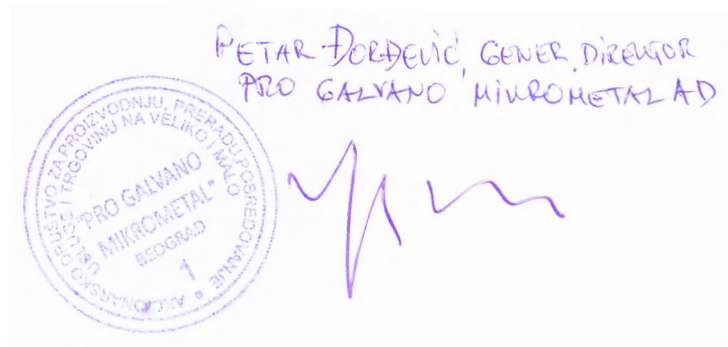 PETAR ĐORĐEVIĆ, GENER. DIREKTOR
PRO GALVANO MIKROMETAL AD
AKCIONARSKO DRUŠTVO ZA PROIZVODNJU, PRERADU, POSREDOVANJE
USLUGE I TRGOVINU NA VELIKO I MALO
"PRO GALVANO
MIKROMETAL"
BEOGRAD
1